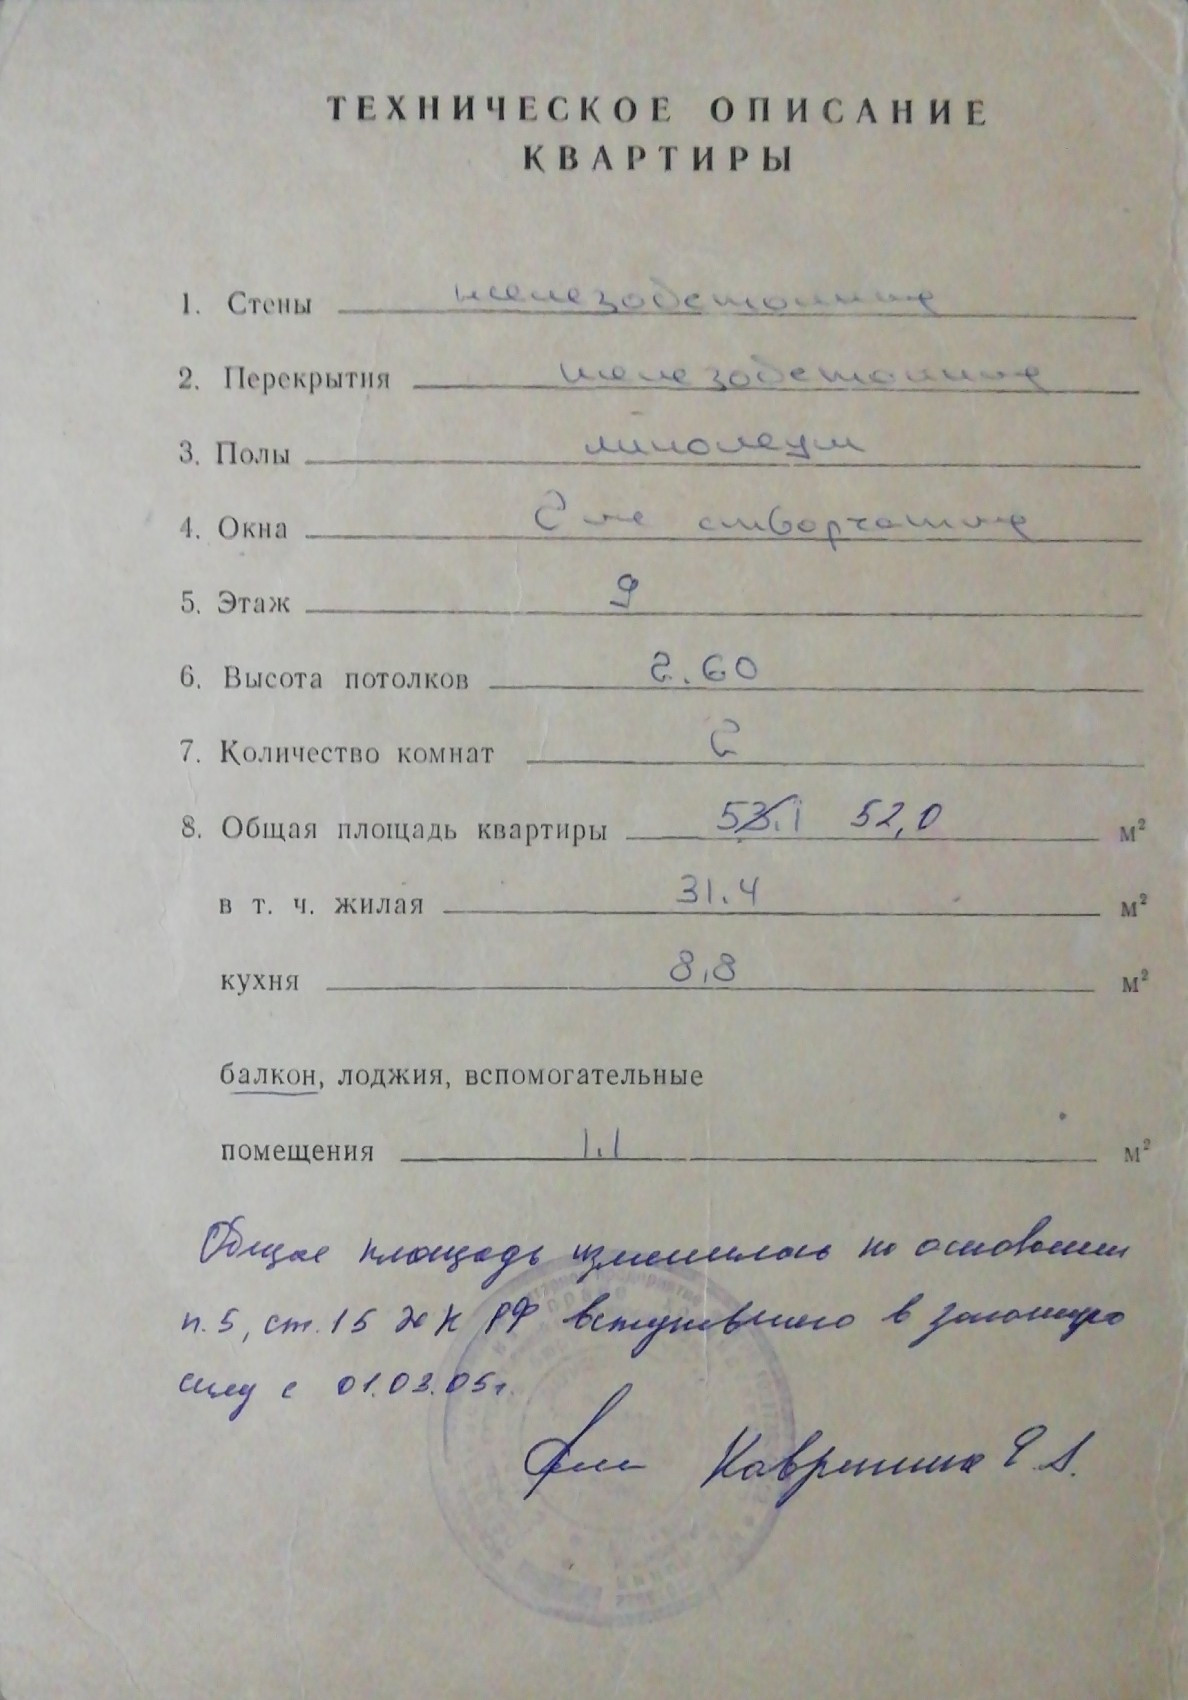 ТЕХНИЧЕСКОЕ ОПИСАНИЕ
КВАРТИРЫ
1. Стены железобетонные
2. Перекрытия железобетонные
3. Полы линолеум
4. Окна 2-ые створчатые
5. Этаж 9
6. Высота потолков 2.60
7. Количество комнат 2
8. Общая площадь квартиры 53.1 52,0 м²
в т. ч. жилая 31.4 м²
кухня 8,8 м²
балкон, лоджия, вспомогательные
помещения 1.1 м²
Общая площадь изменилась на основании
п.5, ст.15 ЖК РФ вступившего в законную
силу с 01.03.05г.